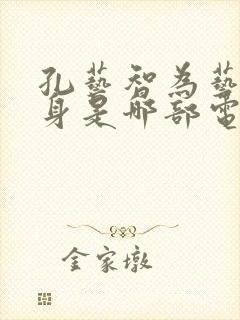 孔藝智為藝
身是那部電
金家墩